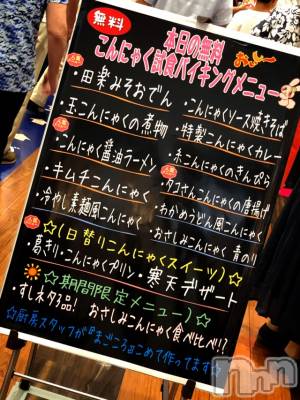 無料
本日の無料
こんにゃく試食バイキングメニュー
人気
・田楽みそおでん
・玉こんにゃくの煮物
・こんにゃくソース焼きそば
・特製こんにゃくカレー
人気
・こんにゃく醤油ラーメン
・糸こんにゃくのきんぴら
・キムチこんにゃく
人気
・タコさんこんにゃくの唐揚げ
・冷やし素麺風こんにゃく
・わかめうどん風こんにゃく
・おさしみこんにゃく 青のり
人気
☆(日替りこんにゃくスイーツ)☆
・葛きり・こんにゃくプリン・寒天デザート
☆期間限定メニュー)☆
・すしネタ3品! おさしみこんにゃく食べ比べ!?
☆厨房スタッフが『まごころ』こめて作ってます☆